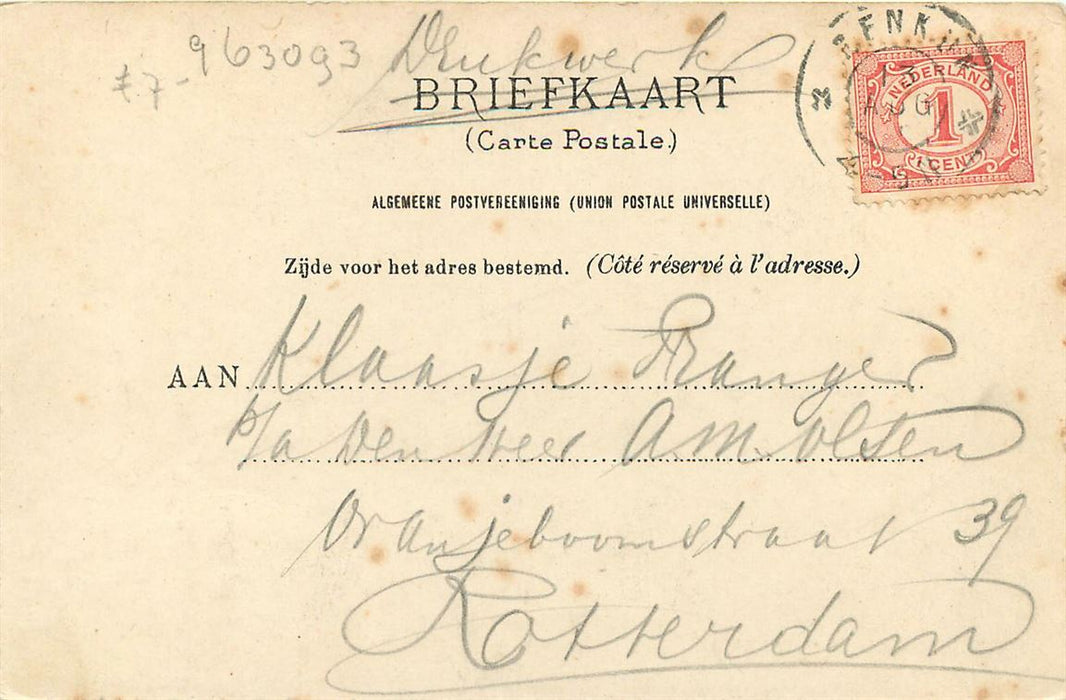 963093 Drukwerk
f.7-
BRIEFKAART
(Carte Postale.)
ALGEMEENE POSTVEREENIGING (UNION POSTALE UNIVERSELLE)
Zijde voor het adres bestemd. (Côté réservé à l'adresse.)
NEDERLAND
1
1 CENT
13
AUG
AAN Klaasje Pranger
p/a Den Heer A.M. Olsen
Oranjeboomstraat 39
Rotterdam